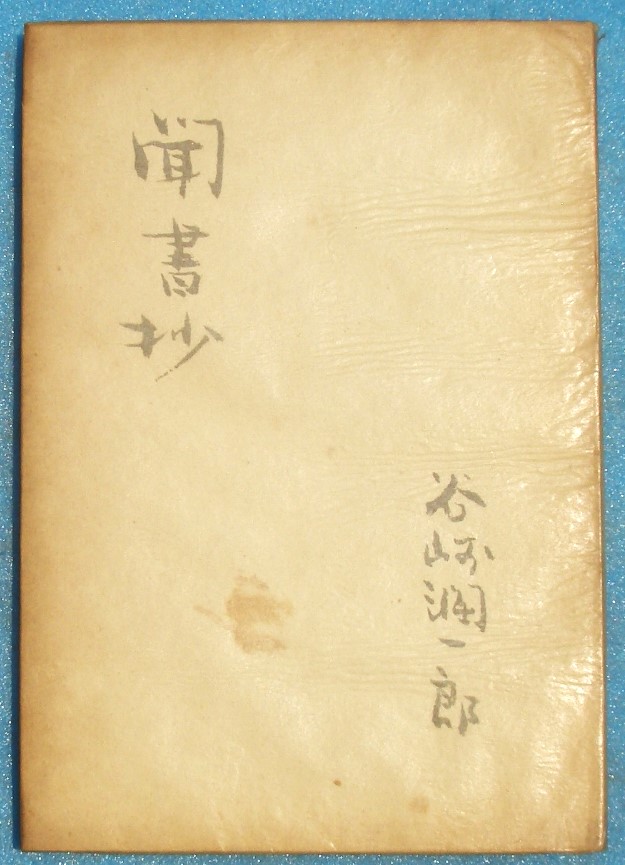 聞書抄
谷崎潤一郎